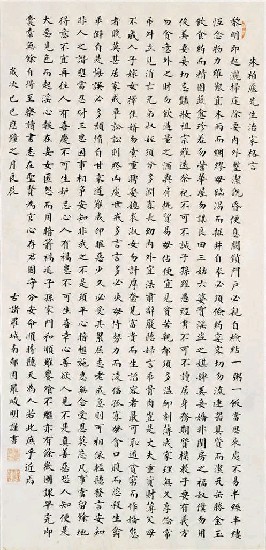 朱柏廬先生治家格言
黎明即起灑掃庭除要內外整潔既昏便息關鎖門戶必親自檢點一粥一飯當思來處不易半絲半縷
恒念物力維艱宜未雨而綢繆毋臨渴而掘井自奉必須儉約宴客切勿留連器具質而潔瓦缶勝金玉
飲食約而精園蔬愈珍羞勿營華屋勿謀良田三姑六婆實淫盜之媒婢美妾嬌非閨房之福奴僕勿用
俊美妻妾切忌豔妝祖宗雖遠祭祀不可不誠子孫雖愚經書不可不讀居身務期質樸教子要有義方
勿貪意外之財勿飲過量之酒與肩挑貿易毋佔便宜見貧苦親鄰須多溫卹刻薄成家理無久享倫常
乖舛立見消亡兄弟叔姪須多分潤寡長幼內外宜法肅辭嚴聽婦言乖骨肉豈是丈夫重貲財薄父母
不成人子嫁女擇佳婿毋索重聘娶媳求淑女勿計厚奩見富貴而生諂容者最可恥遇貧窮而作驕態
者賤莫甚居家戒爭訟訟則終凶處世戒多言言多必失毋恃勢力而凌逼孤寡毋貪口腹而恣殺生禽
乖僻自是悔誤必多頹惰自甘家道難成狎暱惡少久必受其累屈志老成急則可相依輕聽發言安知
非人之譖愬當忍耐三思因事相爭安知非我之不是須平心暗想施惠無念受恩莫忘凡事當留餘地
得意不宜再往人有喜慶不可生妒忌心人有禍患不可生喜幸心善欲人見不是真善惡恐人知便是
大惡見色而起淫心報在妻女匿怨而用暗箭禍延子孫家門和順雖饔飧不繼亦有餘歡國課早完即
囊橐無餘自得至樂讀書志在聖賢為官心存君國守分安命順時聽天為人若此庶乎近焉
歲次己巳應鐘之月良辰
古諸羅城南 峻明謹書